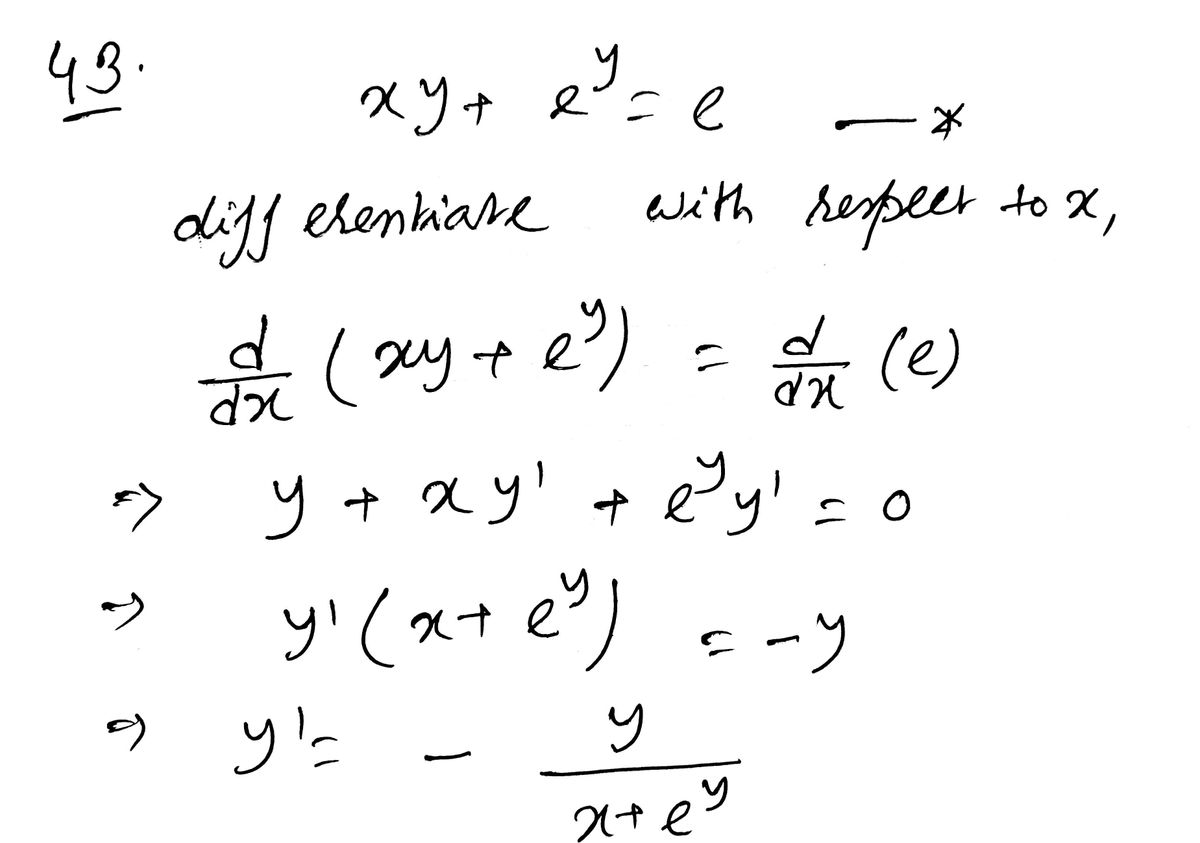 43.
xy + e^y = e —*
differentiate with respect to x,
d/dx (xy + e^y) = d/dx (e)
⇒ y + xy' + e^y y' = 0
⇒ y'(x + e^y) = -y
⇒ y' = - y/(x + e^y)